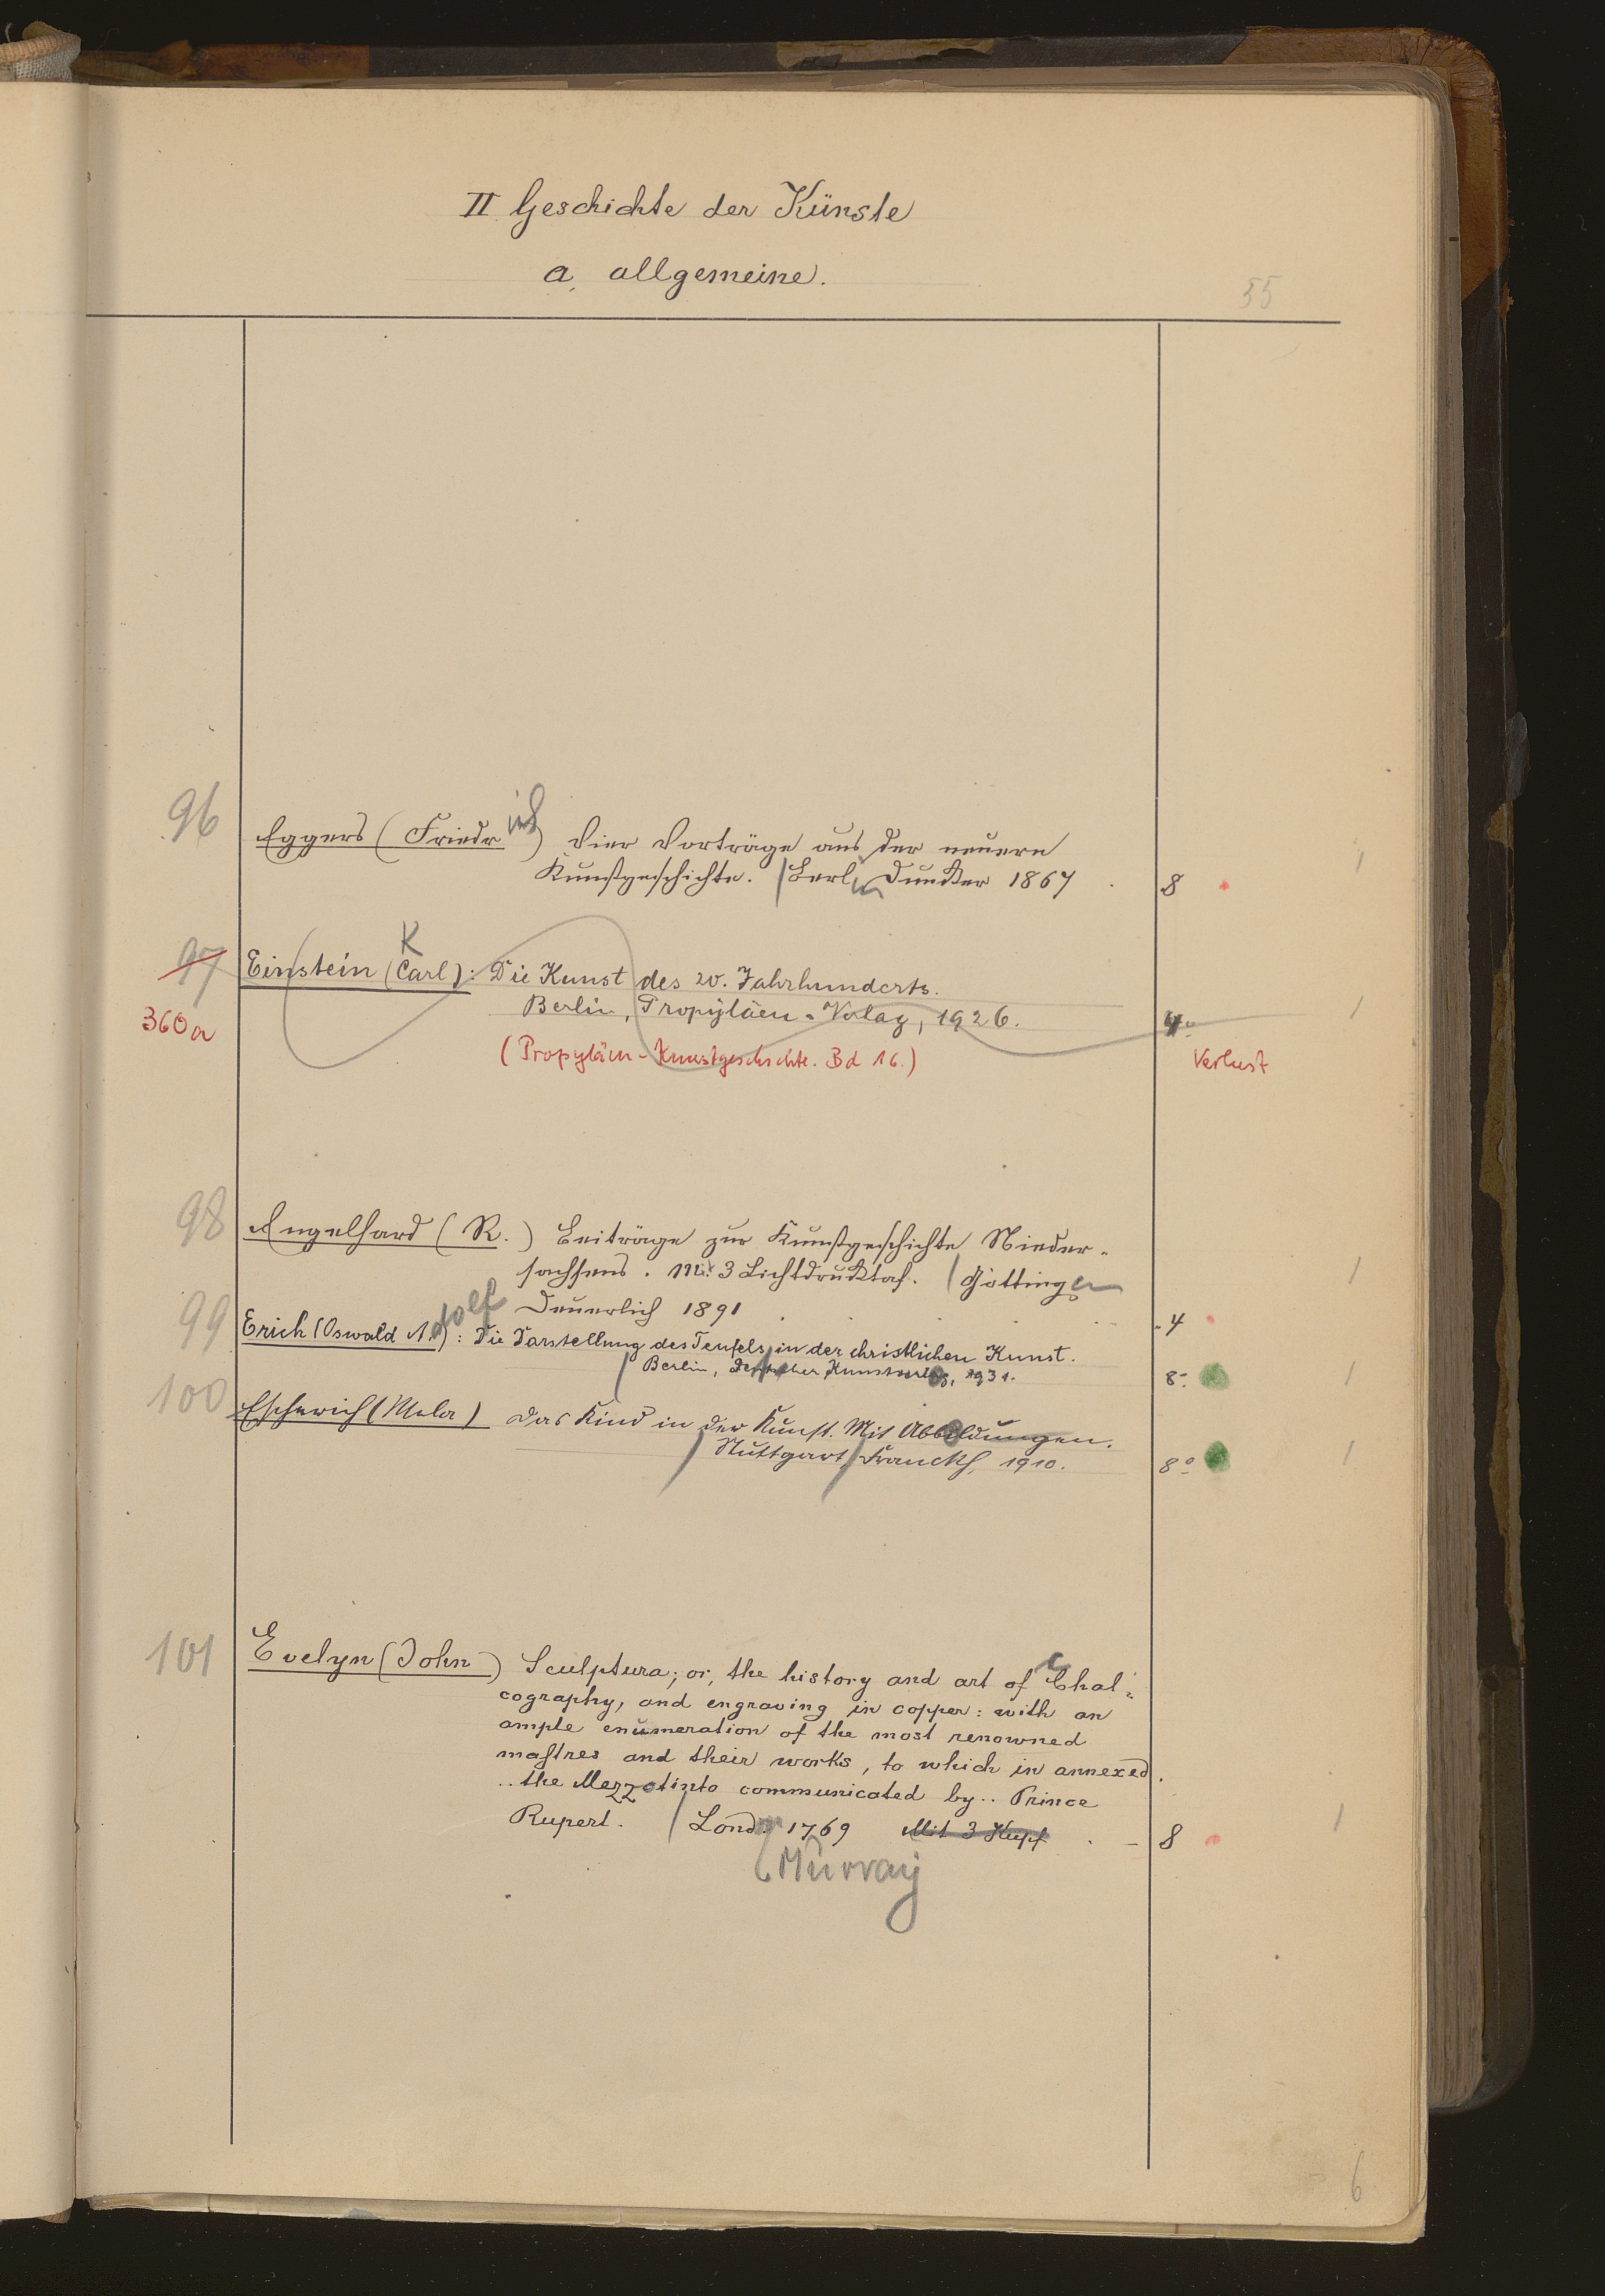 II Geschichte der Künste
a, allgemeine.
55
96 Eggers (Friedrich) Vier Vorträge aus der neuern
Kunstgeschichte. / Berlin Duncker 1867 . 8 1
97 Einstein (Carl): Die Kunst des 20. Jahrhunderts. K
360a Berlin, Propyläen-Verlag, 1926. 4° 1
(Propyläen-Kunstgeschichte. Bd 16.) Verlust
98 Engelhard (R.) Beiträge zur Kunstgeschichte Nieder-
sachsens. Mit 3 Lichtdrucktaf. / Göttingen 1
Deuerlich 1891 . . . 4
99 Erich (Oswald Adolf): Die Darstellung des Teufels in der christlichen Kunst.
/ Berlin, Deutscher Kunstverlag, 1931. 8° 1
100 Escherich (Mela) Das Kind in der Kunst. Mit Abbildungen.
/ Stuttgart, / Franckh, 1910. 8° 1
101 Evelyn (John) Sculptura; or, the history and art of Chal-
cography, and engraving in copper: with an
ample enumeration of the most renowned
mastres and their works, to which in annexed
.. the Mezzotinto communicated by .. Prince
Rupert. / London 1769 Mit 3 Kupf . - 8 1
Murray
6